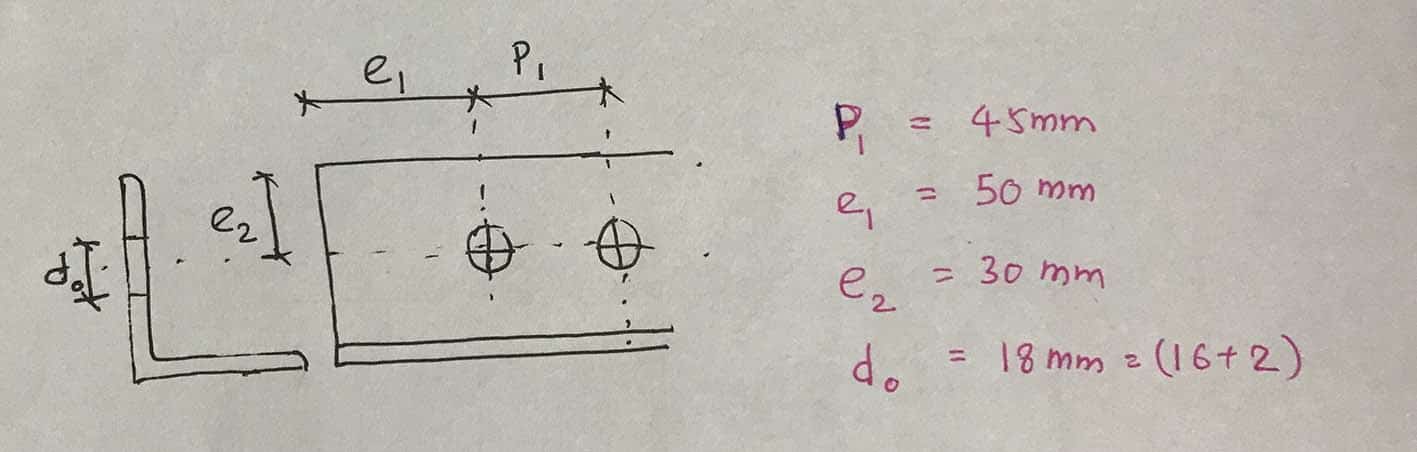 e₁ P₁
e₂
d₀
P₁ = 45mm
e₁ = 50 mm
e₂ = 30 mm
d₀ = 18 mm = (16+2)